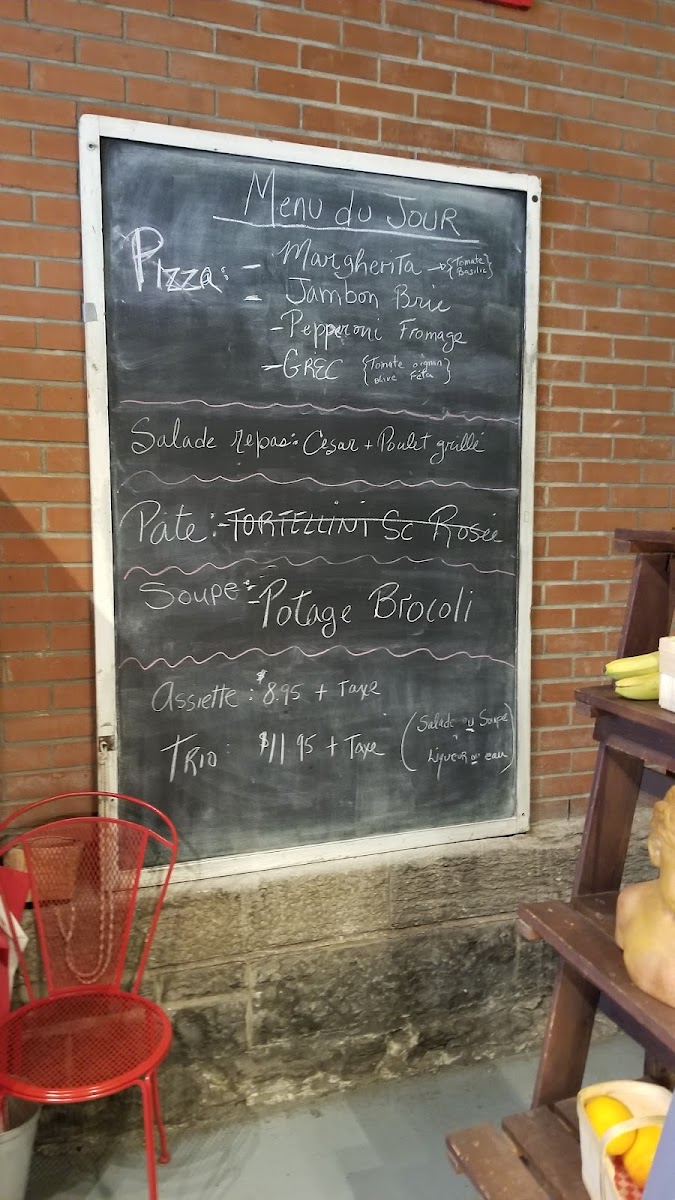 Menu du JOUR
Pizza: - Margherita → {Tomate Basilic}
- Jambon Brie
- Pepperoni Fromage
- GREC {Tomate oignon olive Féta}
Salade repas: Cesar + Poulet grillé
Pâte: - TORTELLINI Sc Rosée
Soupe: - Potage Brocoli
Assiette: $8.95 + Taxe
TRIO: $11 95 + Taxe (Salade ou Soupe
Liqueur ou eau)